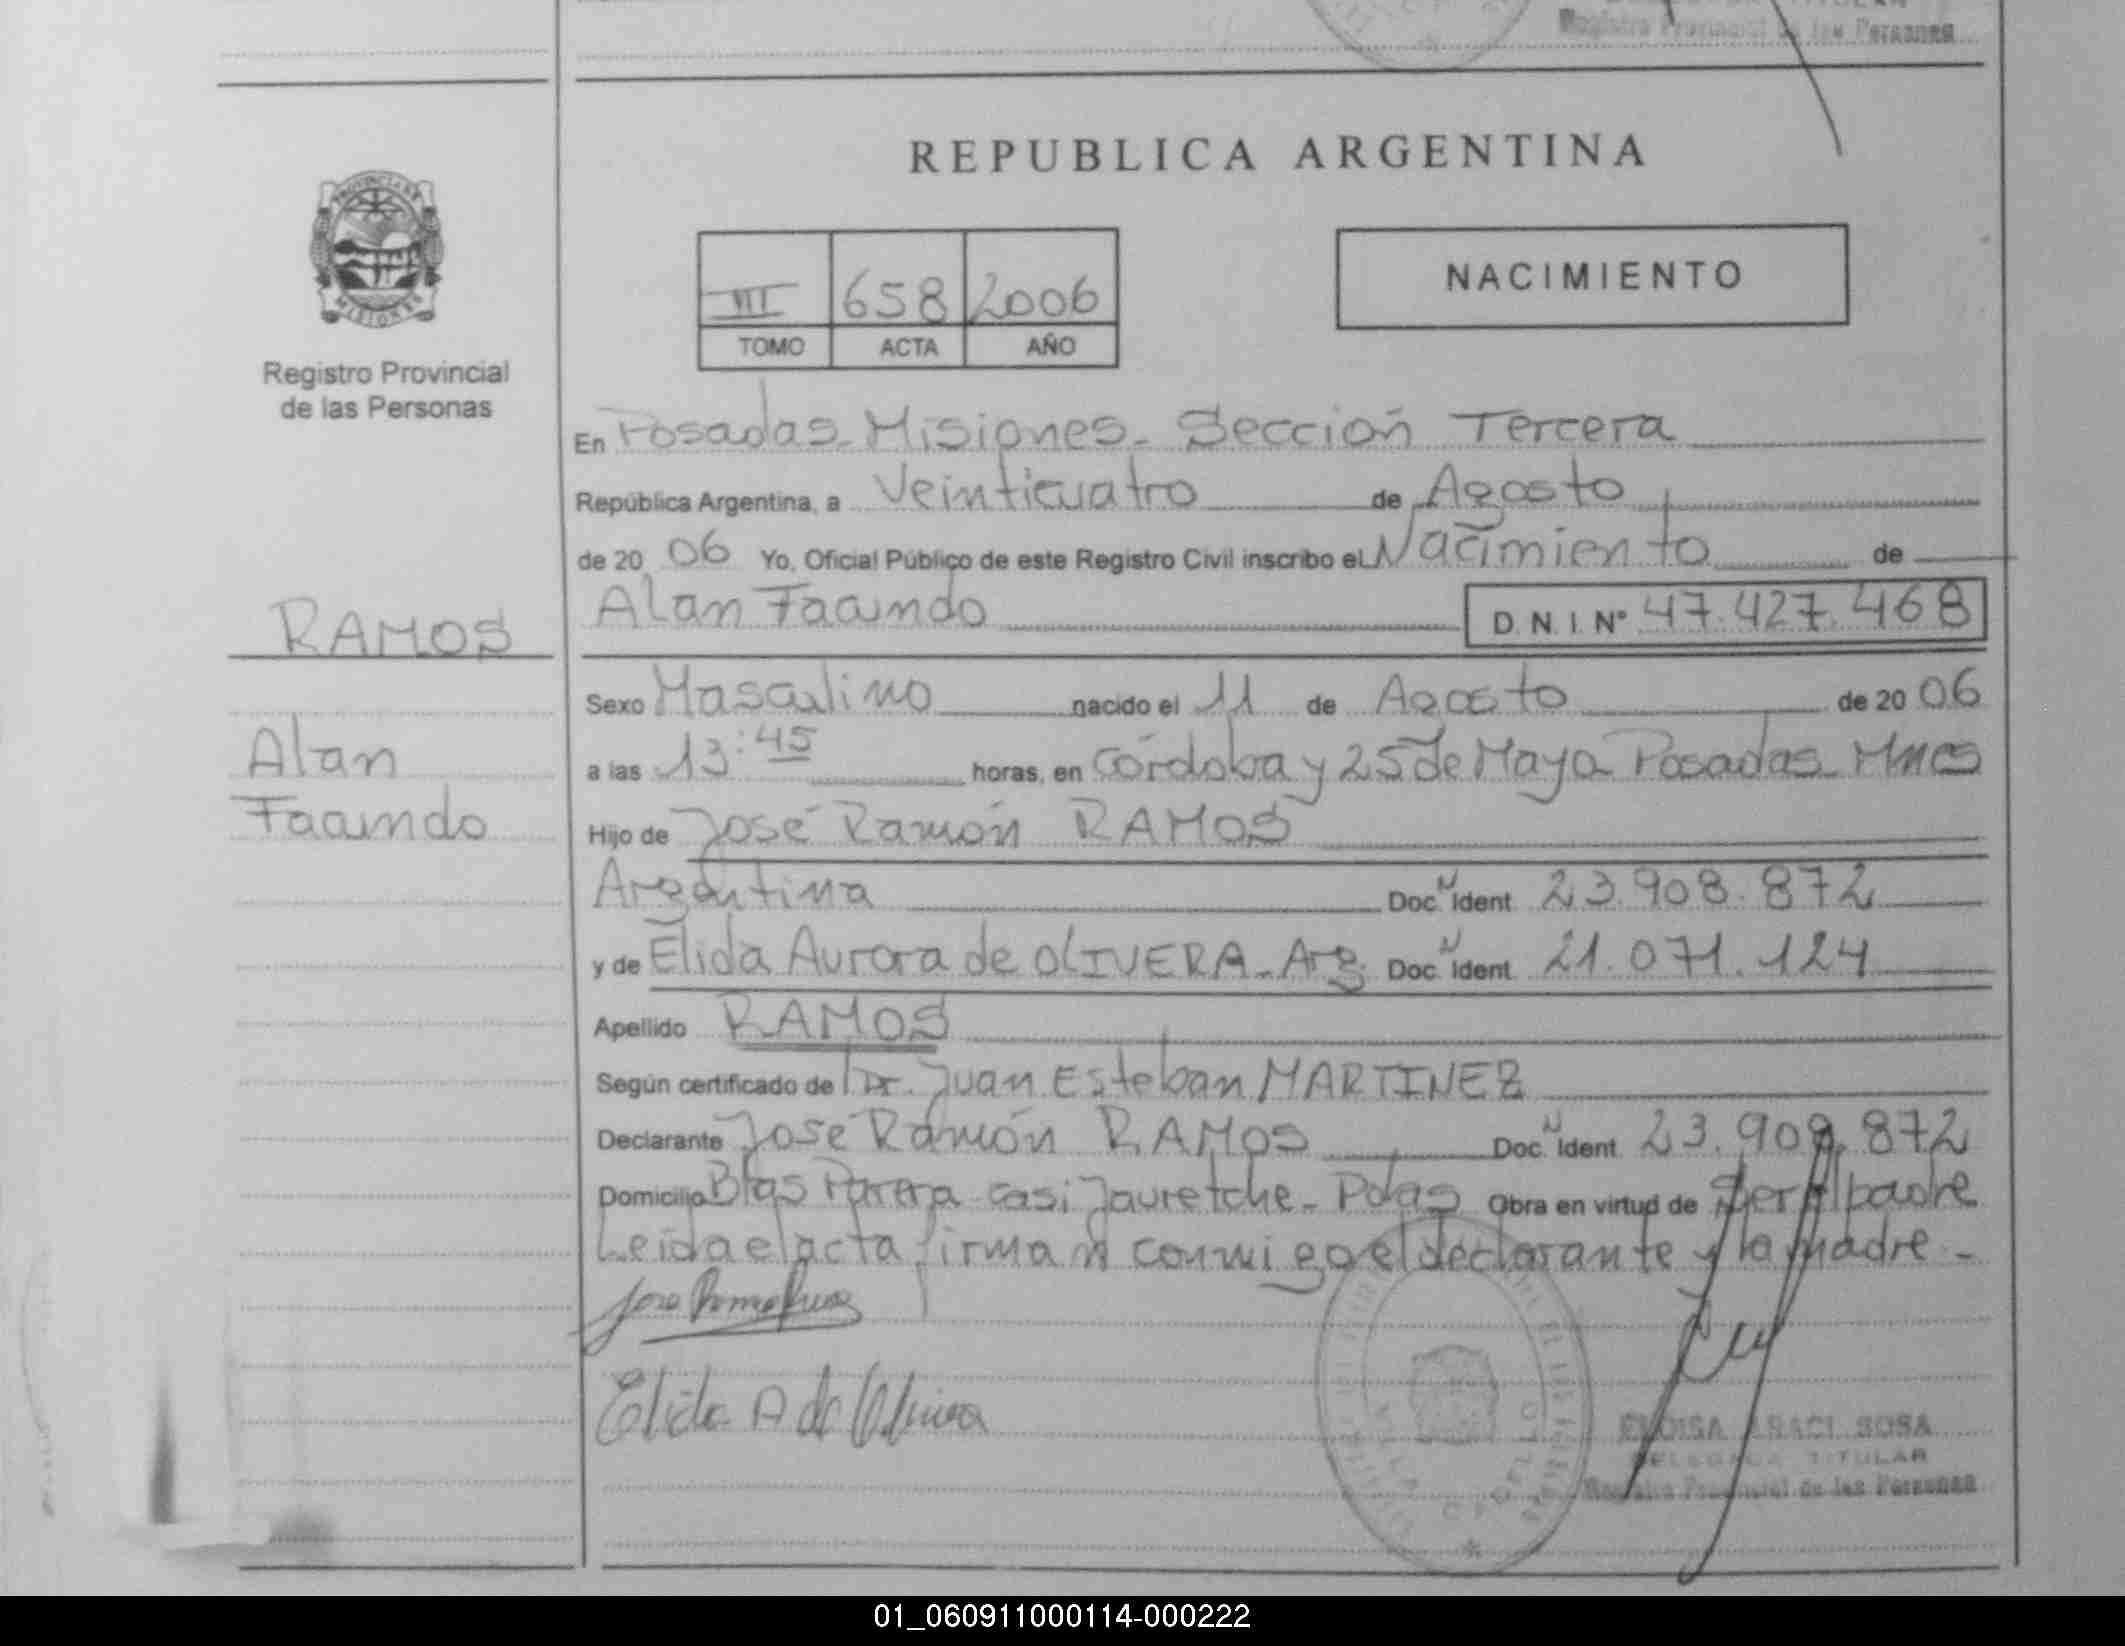 Registro Provincial de las Personas
REPUBLICA ARGENTINA
PROVINCIA DE
MISIONES
Registro Provincial
de las Personas
III 658 2006
TOMO ACTA AÑO
NACIMIENTO
En Posadas - Misiones - Sección Tercera
República Argentina, a Veinticuatro de Agosto
de 20 06 Yo, Oficial Público de este Registro Civil inscribo el Nacimiento de
RAMOS
Alan Facundo D.N.I. Nº 47.427.468
Sexo Masculino nacido el 11 de Agosto de 20 06
Alan
a las 13:45 horas, en Córdoba y 25 de Mayo Posadas - Mnes
Facundo
Hijo de José Ramón RAMOS
Argentina Doc. Ident. 23.908.872
y de Elida Aurora de OLIVERA - Arg. Doc. Ident. 21.071.124
Apellido RAMOS
Según certificado de Dr. Juan Esteban MARTINEZ
Declarante José Ramón RAMOS Doc. Ident. 23.908.872
Domicilio Blas Parera casi Jauretche - Pdas Obra en virtud de Ser el padre
Leida el acta firman conmigo el declarante y la madre -
Elida A de Olivera
ELOISA ARACI SOSA
DELEGADA TITULAR
Registro Provincial de las Personas
01_060911000114-000222